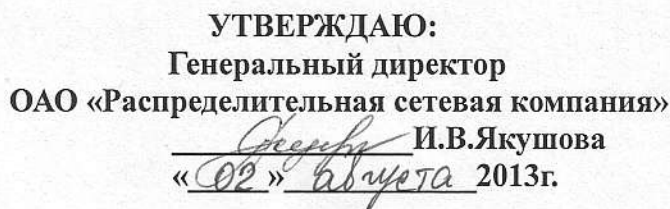 УТВЕРЖДАЮ:
Генеральный директор
ОАО «Распределительная сетевая компания»
И.В.Якушова
«02» августа 2013г.